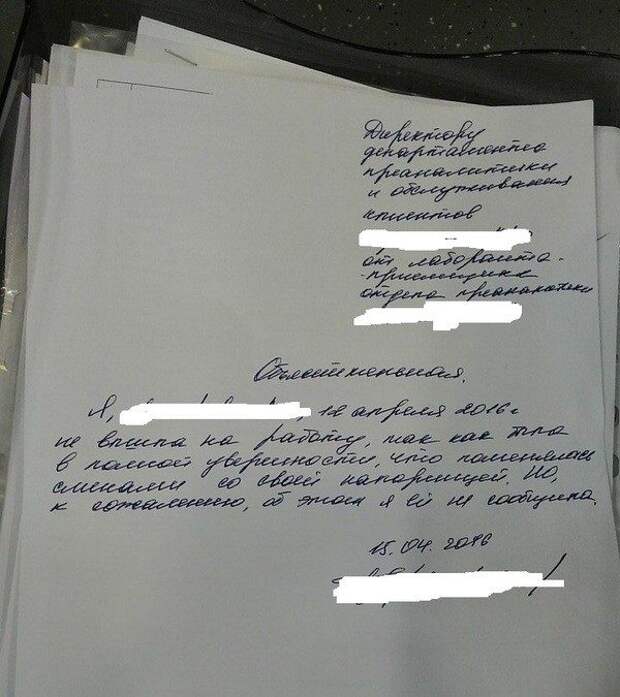 Директору
департамента
преаналитики
и обслуживания
клиентов
от лаборанта-
-приемщика
отдела преаналитики
Объяснительная.
Я, , 12 апреля 2016г
не вышла на работу, так как была
в полной уверенности, что поменялась
сменами со своей напарницей. Но,
к сожалению, об этом я ей не сообщила.
15.04.2016